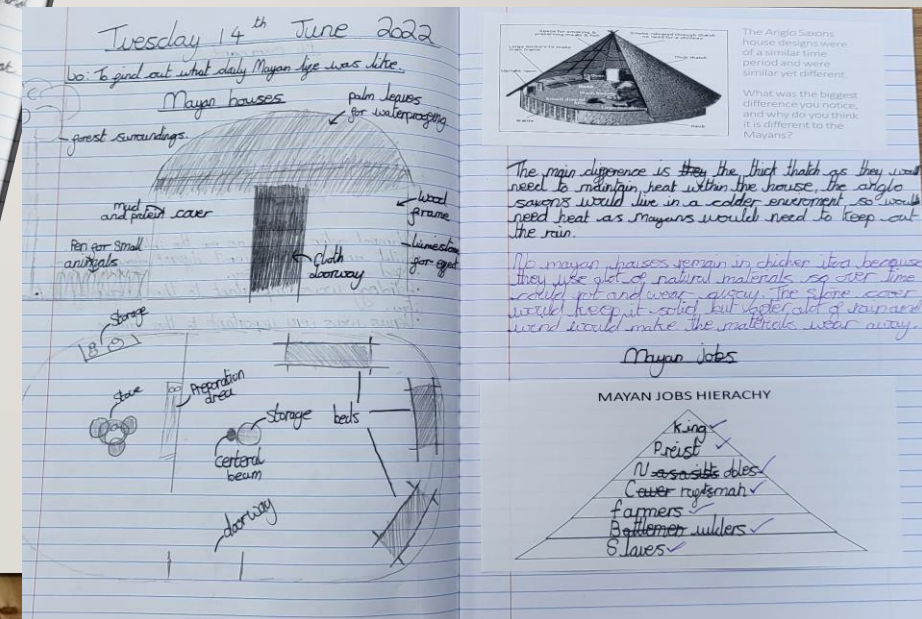 Tuesday 14th June 2022
Lo: To find out what daily Mayan lyfe was like.
Mayan houses
palm leaves
for waterproofing
forest suroundings.
mud
and
cover
wood
frame
Pen for small
animals
Cloth
doorway
limeston
for
storage
Stove
Preparation
area
Storage
beds
Certeral
beam
doorway
Space for smoking &
preserving meats & fish
Smoke released through thatch
no need for a chimney
Thick thatch
Upright
The Anglo Saxons
house designs were
of a similar time
period and were
similar yet different.
What was the biggest
difference you notice,
and why do you think
it is different to the
Mayans?
The main difference is they the thick thatch as they would
need to maintain heat within the house, the anglo
saxons would live in a colder enviroment, so would
need heat as Mayans would need to keep out
the rain.
No mayan houses remain in chicher itza because
they use alot of natural materials, so over time
could rot and wear away. The stone cover
would keep it solid, but alot of rain and
wind would make the materials wear away.
Mayan jobs
MAYAN JOBS HIERACHY
King
Preist
N obles
C raftsman
farmers
B uilders
Slaves